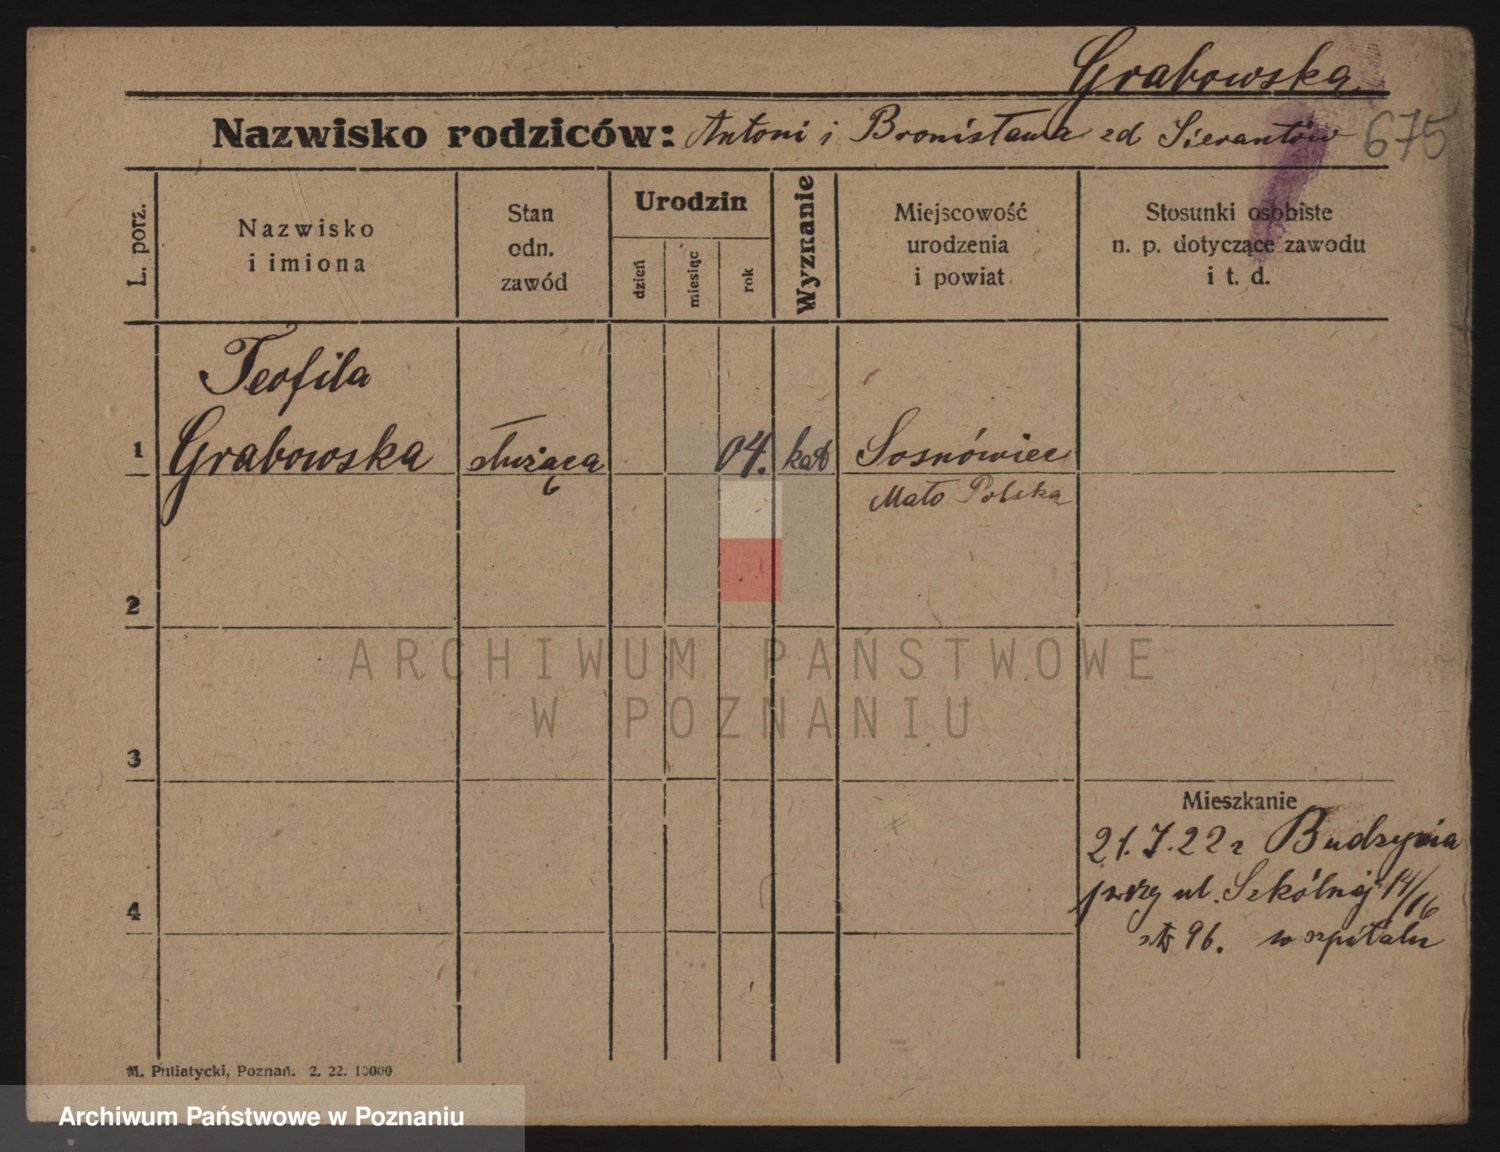 Grabowska
Nazwisko rodziców: Antoni i Bronisława zd Sierantów 675
L. porz.
Nazwisko i imiona
Stan odn. zawód
Urodzin
dzień
miesiąc
rok
Wyznanie
Miejscowość urodzenia i powiat
Stosunki osobiste n. p. dotyczące zawodu i t. d.
Teofila
1 Grabowska służąca 04. kat Sosnówiec
Mało Polska
2
ARCHIWUM PAŃSTWOWE
W POZNANIU
3
Mieszkanie
21.7.22 r Budzynia
przy ul. Szkólnej 14/16
4
str 96. w szpitalu
M. Putiatycki, Poznań. 2. 22. 10000
Archiwum Państwowe w Poznaniu